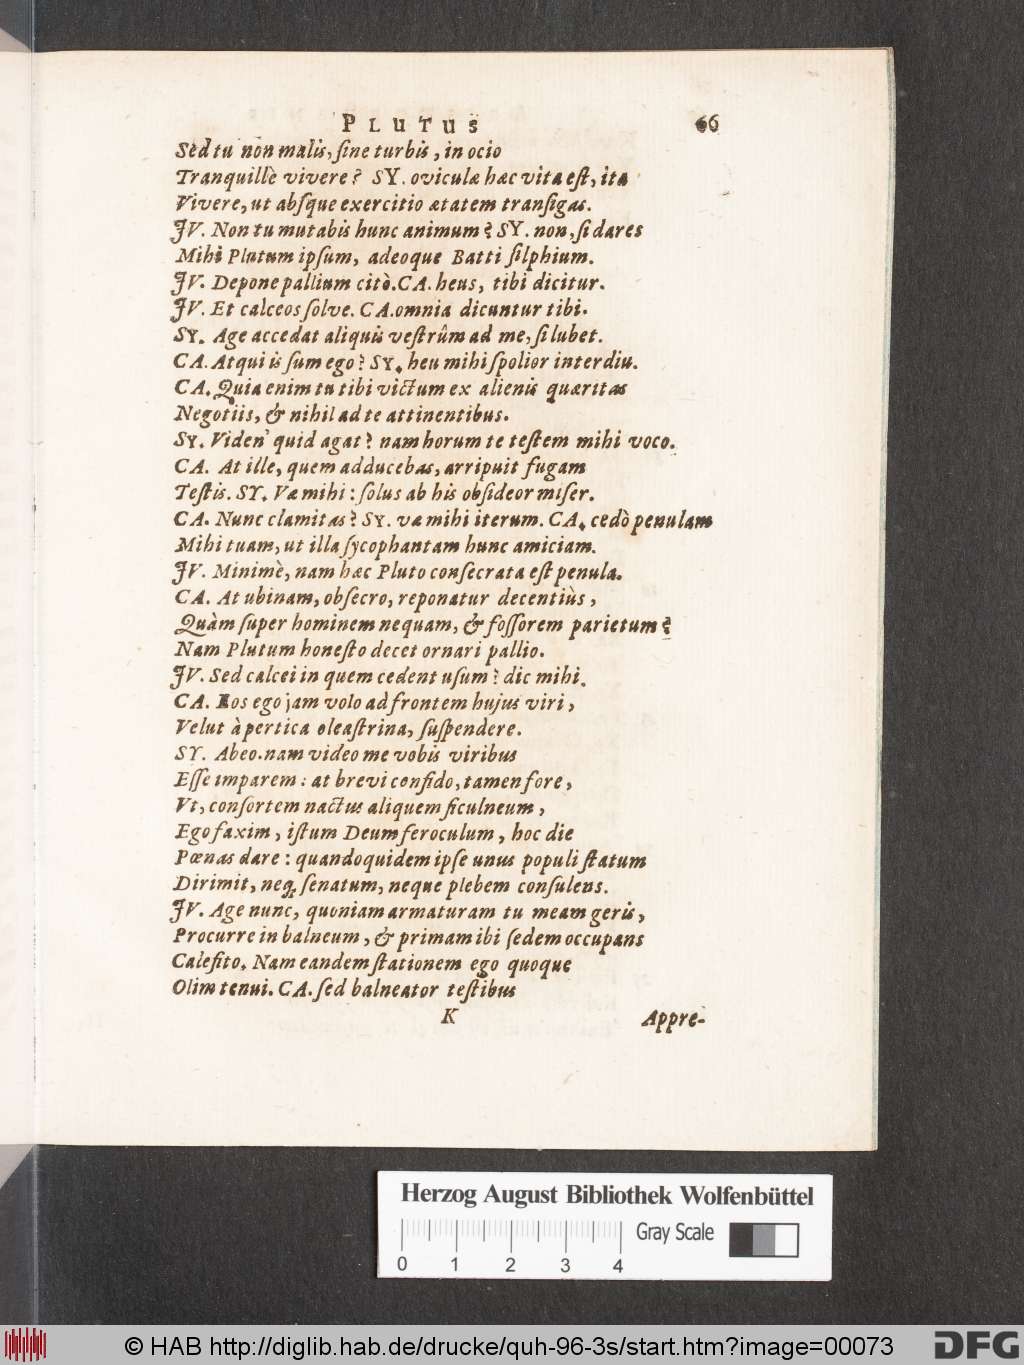 PLUTUS 66
Sèd tu non malis, ſine turbis, in ocio
Tranquillè vivere? SY. oviculæ hæc vita eſt, ita
Vivere, ut abſque exercitio ætatem tranſigas.
JV. Non tu mutabis hunc animum? SY. non, ſi dares
Mihi Plutum ipſum, adeoque Batti ſilphium.
JV. Depone pallium citò. CA. heus, tibi dicitur.
JV. Et calceos ſolve. CA. omnia dicuntur tibi.
SY. Age accedat aliquis veſtrûm ad me, ſi lubet.
CA. Atqui is ſum ego? SY. heu mihi ſpolior interdiu.
CA. Quia enim tu tibi victum ex alienis quæritas
Negotiis, & nihil ad te attinentibus.
SY. Viden' quid agat? nam horum te teſtem mihi voco.
CA. At ille, quem adducebas, arripuit fugam
Teſtis. SY. Væ mihi: ſolus ab his obſideor miſer.
CA. Nunc clamitas? SY. væ mihi iterum. CA. cedò penulam
Mihi tuam, ut illa ſycophantam hunc amiciam.
JV. Minimè, nam hæc Pluto conſecrata eſt penula.
CA. At ubinam, obſecro, reponatur decentiùs,
Quàm ſuper hominem nequam, & foſſorem parietum?
Nam Plutum honeſto decet ornari pallio.
JV. Sed calcei in quem cedent uſum? dic mihi.
CA. Eos ego jam volo ad frontem hujus viri,
Velut à pertica oleaſtrina, ſuſpendere.
SY. Abeo. nam video me vobis viribus
Eſſe imparem: at brevi confido, tamen fore,
Vt, conſortem nactus aliquem ficulneum,
Ego faxim, iſtum Deum feroculum, hoc die
Pœnas dare: quandoquidem ipſe unus populi ſtatum
Dirimit, neq; ſenatum, neque plebem conſulens.
JV. Age nunc, quoniam armaturam tu meam geris,
Procurre in balneum, & primam ibi ſedem occupans
Calefito. Nam eandem ſtationem ego quoque
Olim tenui. CA. ſed balneator teſtibus
K Appre-
Herzog August Bibliothek Wolfenbüttel
Gray Scale
0 1 2 3 4
© HAB http://diglib.hab.de/drucke/quh-96-3s/start.htm?image=00073 DFG